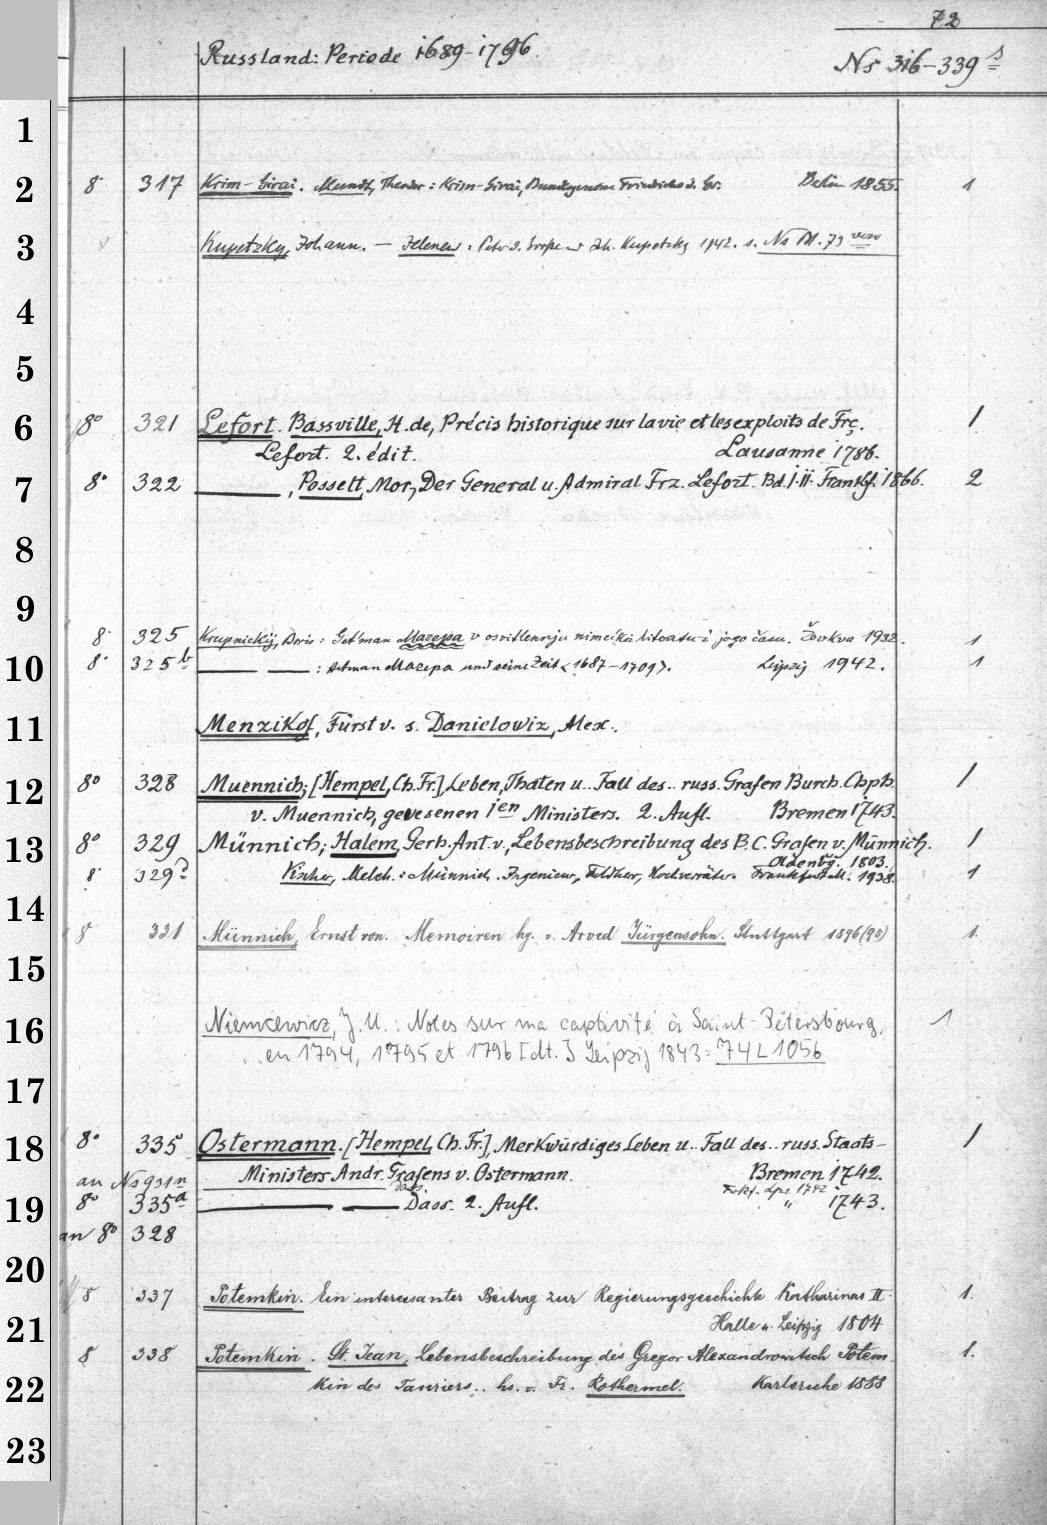 72
Russland: Periode 1689-1796. Ns 316-339 s
1
2 8° 317 Krim-Girai. Mundt, Theodor: Krim-Girai, Bundesgenosse Friedrichs d. Gr. Berlin 1855. 1
3 Kupetzky, Johann. — : Peter d. Große u. Joh. Kupetzky 1942. s. Ns Bl. 73 verso
4
5
6 8° 321 Lefort. Bassville, H. de, Précis historique sur la vie et les exploits de Frç. 1
Lefort. 2. édit. Lausanne 1786.
7 8° 322 ——, Posselt, Mor., Der General u. Admiral Frz. Lefort. Bd. I.II. Frankf. 1866. 2
8
9
8° 325 Krupnickij, Boris: Het'man Mazepa v osvitlenniju nimeckoi literaturi jogo času. Žovkva 1932. 1
10 8° 325 b —— —— : Hetman Mazepa und seine Zeit <1687-1709>. Leipzig 1942. 1
11 Menzikof, Fürst v. s. Danielowiz, Alex.
12 8° 328 Muennich; [Hempel, Ch. Fr.], Leben, Thaten u. Fall des.. russ. Grafen Burch. Chph. 1
v. Muennich, gevesenen 1en Ministers. 2. Aufl. Bremen 1743.
13 8° 329 Münnich; Halem, Gerh. Ant. v., Lebensbeschreibung des B. C. Grafen v. Münnich. 1
Oldenbg. 1803.
8° 329 Vischer, Melch.: Münnich. Ingenieur, Feldherr, Hochverräter. Frankfurt a.M. 1938. 1
14 8° 331 Münnich, Ernst von. Memoiren hg. v. Arved Jürgensohn. Stuttgart 1896 1.
15
16 Niemcewicz, J. U.: Notes sur ma captivité à Saint-Pétersbourg, 1
en 1794, 1795 et 1796 [dt.] Leipzig 1843 = 74 L 1056
17
18 8° 335 Ostermann. [Hempel, Ch. Fr.], Merkwürdiges Leben u.. Fall des.. russ. Staats- 1
Ministers Andr. Grafens v. Ostermann. Bremen 1742.
an Ns 931n Dass. Frkf. Lpz. 1742
19 8° 335 a —— —— Dass. 2. Aufl. " 1743.
an 8° 328
20
8° 337 Potemkin. Ein interessanter Beitrag zur Regierungsgeschichte Katharinas II. 1.
21 Halle u. Leipzig 1804
8° 338 Potemkin. St. Jean, Lebensbeschreibung des Gregor Alexandrowitsch Potem- 1.
22 kin des Tauriers.. hs. v. Fr. Rothermel. Karlsruhe 1888
23